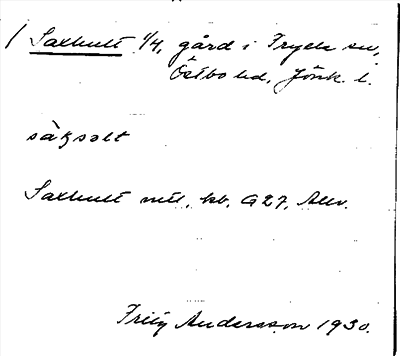 / Saxhult 1/4, gård i Tryels sn,
Östbo hd, Jönk. l.
Saxhult mtl, kb. G27, Allv.
Fritz Andersson 1930.